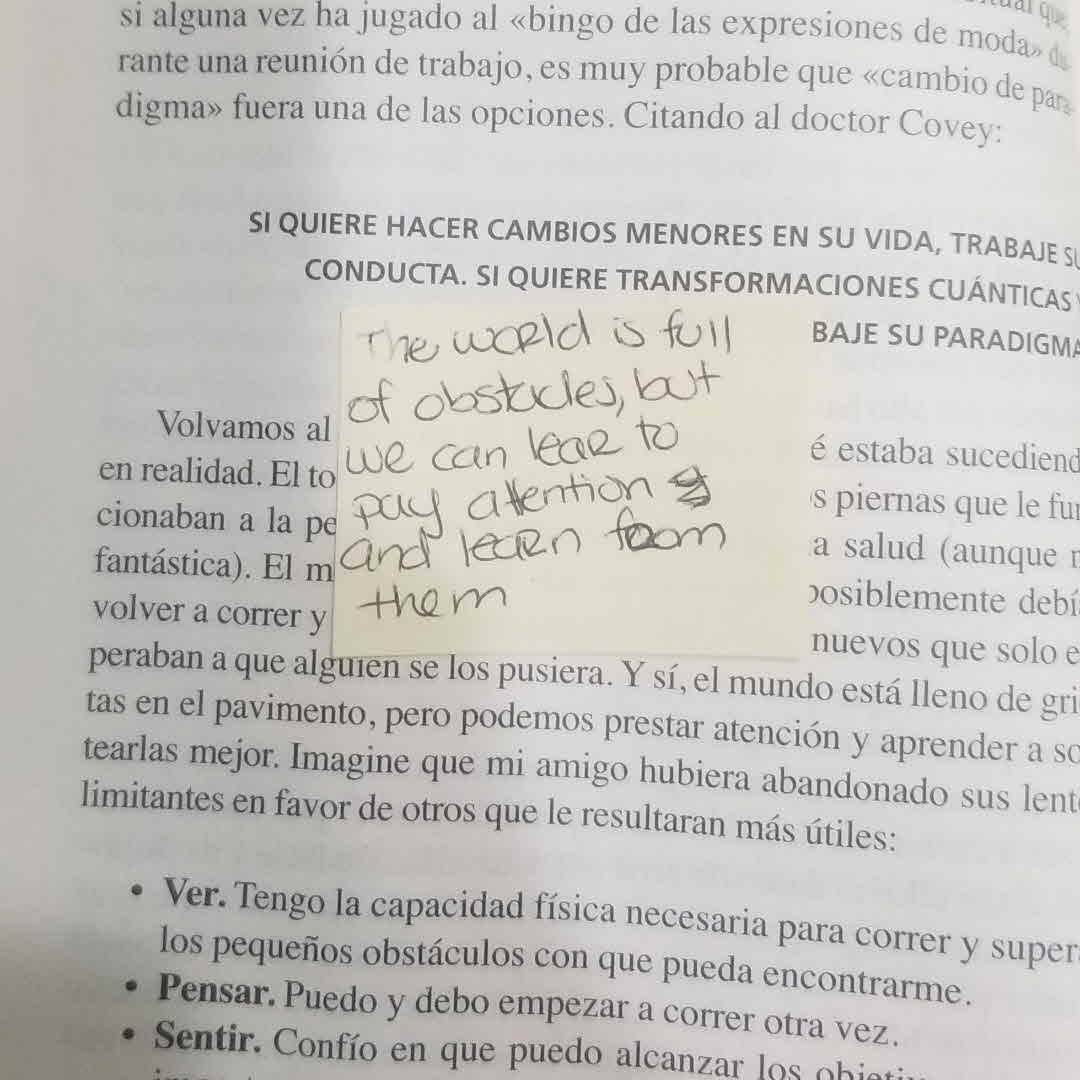 si alguna vez ha jugado al «bingo de las expresiones de moda» du
rante una reunión de trabajo, es muy probable que «cambio de para
digma» fuera una de las opciones. Citando al doctor Covey:
SI QUIERE HACER CAMBIOS MENORES EN SU VIDA, TRABAJE SU
CONDUCTA. SI QUIERE TRANSFORMACIONES CUÁNTICAS
BAJE SU PARADIGMA
The world is full
of obstacles, but
we can lear to
pay attention
and learn from
them
Volvamos al é estaba sucediend
en realidad. El to s piernas que le fun
cionaban a la pe a salud (aunque
fantástica). El m posiblemente debí
volver a correr y nuevos que solo e
peraban a que alguien se los pusiera. Y sí, el mundo está lleno de gri
tas en el pavimento, pero podemos prestar atención y aprender a so
tearlas mejor. Imagine que mi amigo hubiera abandonado sus lente
limitantes en favor de otros que le resultaran más útiles:
• Ver. Tengo la capacidad física necesaria para correr y supera
los pequeños obstáculos con que pueda encontrarme.
• Pensar. Puedo y debo empezar a correr otra vez.
• Sentir. Confío en que puedo alcanzar los objetiv